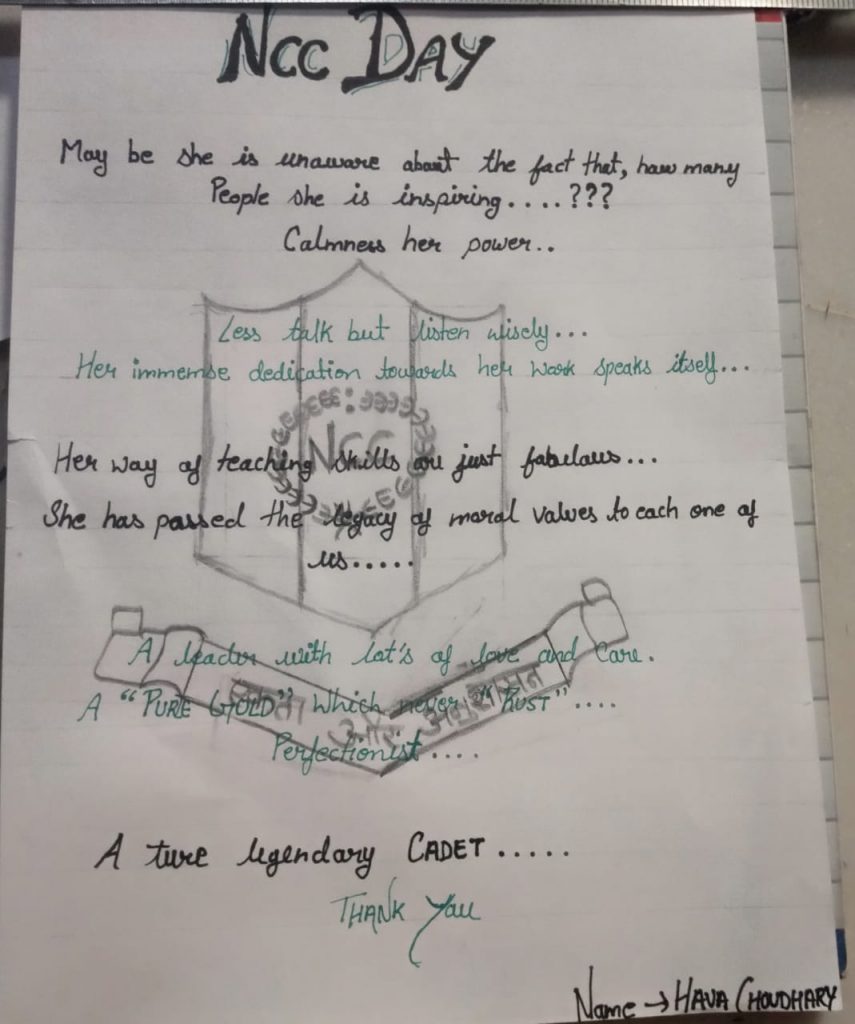 NCC DAY
May be she is unaware about the fact that, how many
People she is inspiring....???
Calmness her power..
Less talk but listen wisely...
Her immense dedication towards her work speaks itself...
NCC
Her way of teaching skills are just fabulous...
She has passed the legacy of moral values to each one of
us.....
A leader with lot's of love and Care.
A "PURE GOLD" Which never "RUST"....
एकता और अनुशासन
Perfectionist....
A ture legendary CADET.....
THANK You
Name → HAVA CHOUDHARY